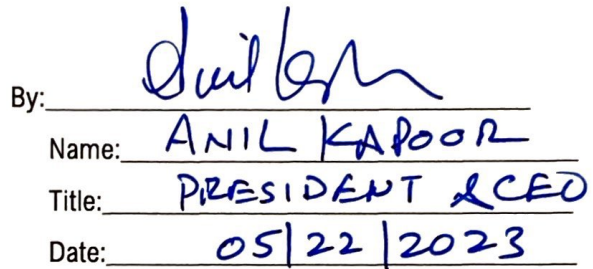 By:
Name: ANIL KAPOOR
Title: PRESIDENT & CEO
Date: 05|22|2023